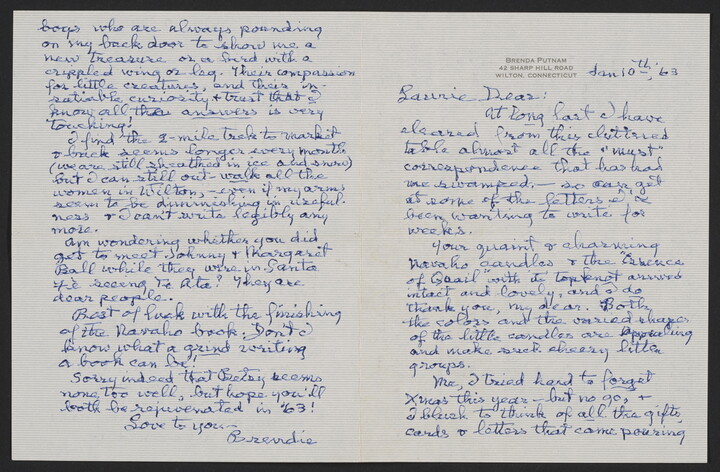 BRENDA PUTNAM
42 SHARP HILL ROAD
WILTON, CONNECTICUT
Jan 10th, '63
Laurie Dear:
At long last I have
cleared from this cluttered
table almost all the "must"
correspondence that has had
me swamped, — so can get
at some of the letters I've
been wanting to write for
weeks.
Your quaint & charming
Navaho candles & the "Essence
of Quail" with its topknot arrived
intact and lovely, and I do
thank you, my dear. Both
the colors and the varied shapes
of the little candles are appealing
and make such cheery little
groups.
Me, I tried hard to forget
Xmas this year — but no go, &
I blush to think of all the gifts,
cards & letters that came pouring
boys who are always pounding
on my back door to show me a
new treasure or a bird with a
crippled wing or leg. Their compassion
for little creatures, and their in-
satiable curiosity & trust that I
know all the answers is very
touching!
I find the 2-mile trek to market
& back seems longer every month
(we are still sheathed in ice and snow)
but I can still out-walk all the
women in Wilton, — even if my arms
seem to be diminishing in useful-
ness & I can't write legibly any
more.
Am wondering whether you did
get to meet Johnny & Margaret
Ball while they were in Santa
Fe seeing Te Ata? They are
dear people.
Best of luck with the finishing
of the Navaho book. Don't I
know what a grind writing
a book can be!
Sorry indeed that Betsy seems
none too well, but hope you'll
both be rejuvenated in '63!
Love to you —
Brendie